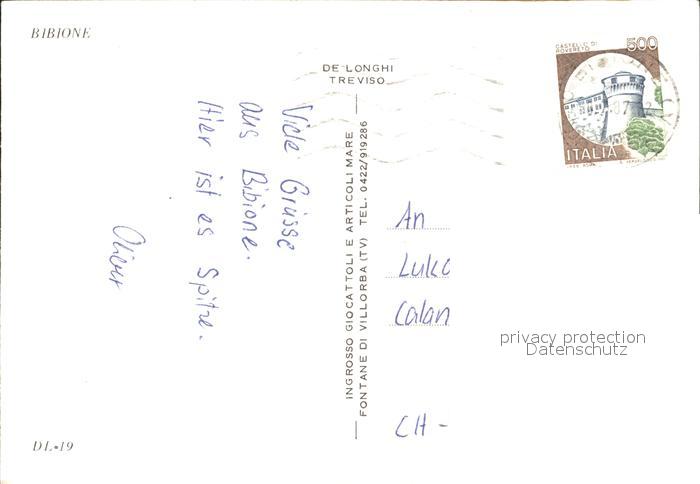 BIBIONE
DE LONGHI
TREVISO
CASTELLO DI
ROVERETO
500
ITALIA
Viele Grüsse
aus Bibione.
Hier ist es Spitze.
Oliver
INGROSSO GIOCATTOLI E ARTICOLI MARE
FONTANE DI VILLORBA (TV) TEL. 0422/919286
An
Luka
Calan
CH-
privacy protection
Datenschutz
DL•19